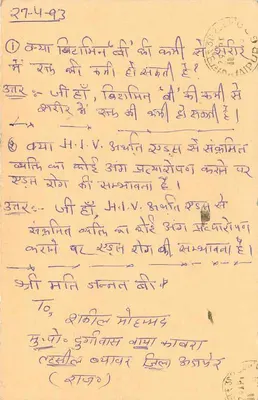 27-4-93
① क्या विटामिन 'बी' की कमी से शरीर
में रक्त की कमी हो सकती है?
उत्तर :- जी हाँ, विटामिन 'बी' की कमी से
शरीर में रक्त की कमी हो सकती है।
② क्या H.I.V. अर्थात एड्स से संक्रमित
व्यक्ति का कोई अंग प्रत्यारोपण करने पर
एड्स रोग की सम्भावना है।
उत्तर:- जी हाँ, H.I.V. अर्थात एड्स से
संक्रमित व्यक्ति का कोई अंग प्रत्यारोपण
करने पर एड्स रोग की सम्भावना है।
श्री मति जन्नत बी
To,
शकील मोहम्मद
मु. पो. दुर्गावास वाया काबरा
तहसील ब्यावर जिला अजमेर
(राज०)